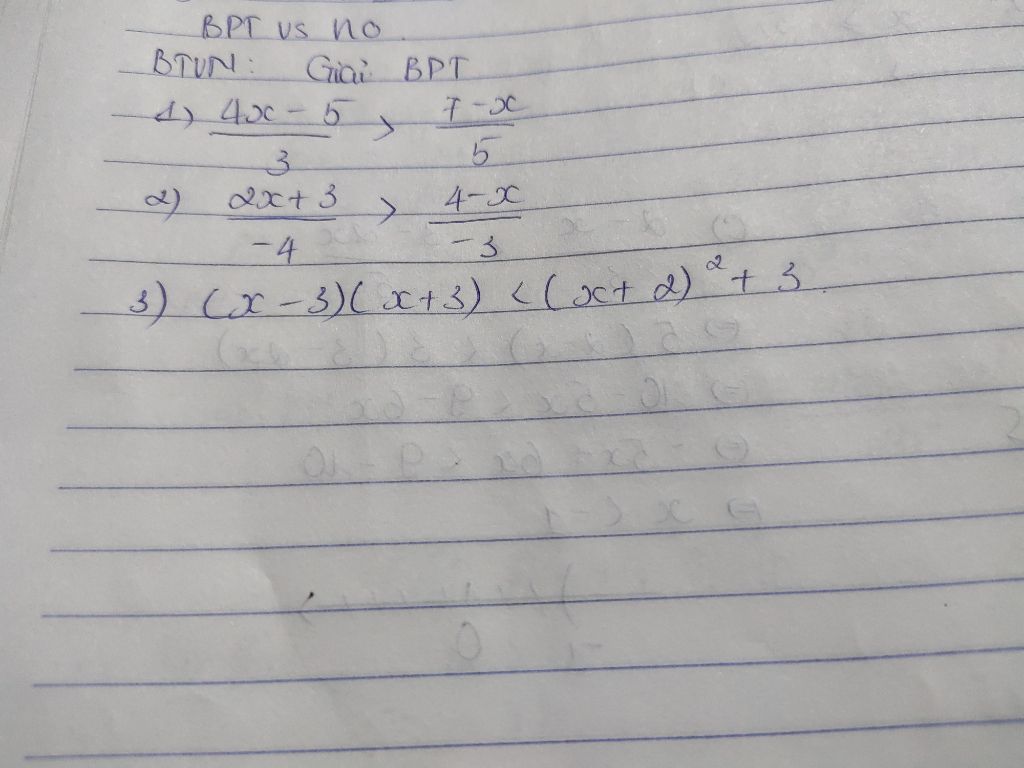 BPT vs no.
BTVN: Giải BPT
1) (4x - 5)/3 > (7 - x)/5
2) (2x + 3)/-4 > (4 - x)/-3
3) (x - 3)(x + 3) < (x + 2)² + 3.